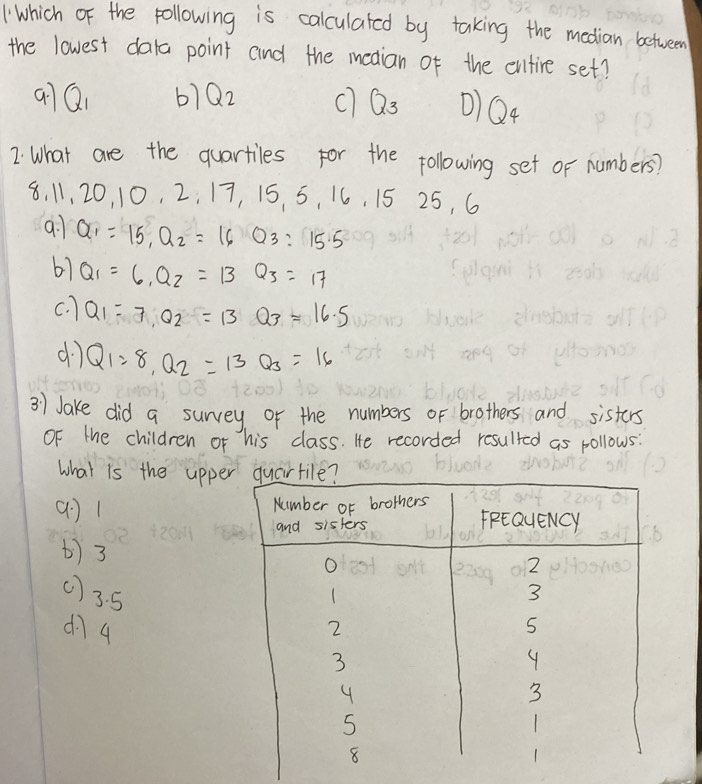 1. Which of the following is calculated by taking the median between
the lowest data point and the median of the entire set?
a.) Q1 b) Q2 c) Q3 D) Q4
2. What are the quartiles for the following set of numbers?
8, 11, 20, 10, 2, 17, 15, 5, 16, 15 25, 6
a.) Q1 = 15, Q2 = 16 Q3 = 15.5
b) Q1 = 6, Q2 = 13 Q3 = 17
c.) Q1 = 7, Q2 = 13 Q3 = 16.5
d.) Q1 = 8, Q2 = 13 Q3 = 16
3.) Jake did a survey of the numbers of brothers and sisters
of the children of his class. He recorded resulted as follows:
What is the upper quartile?
a.) 1
b) 3
c) 3.5
d.) 4
Number of brothers
and sisters FREQUENCY
0 2
1 3
2 5
3 4
4 3
5 1
8 1